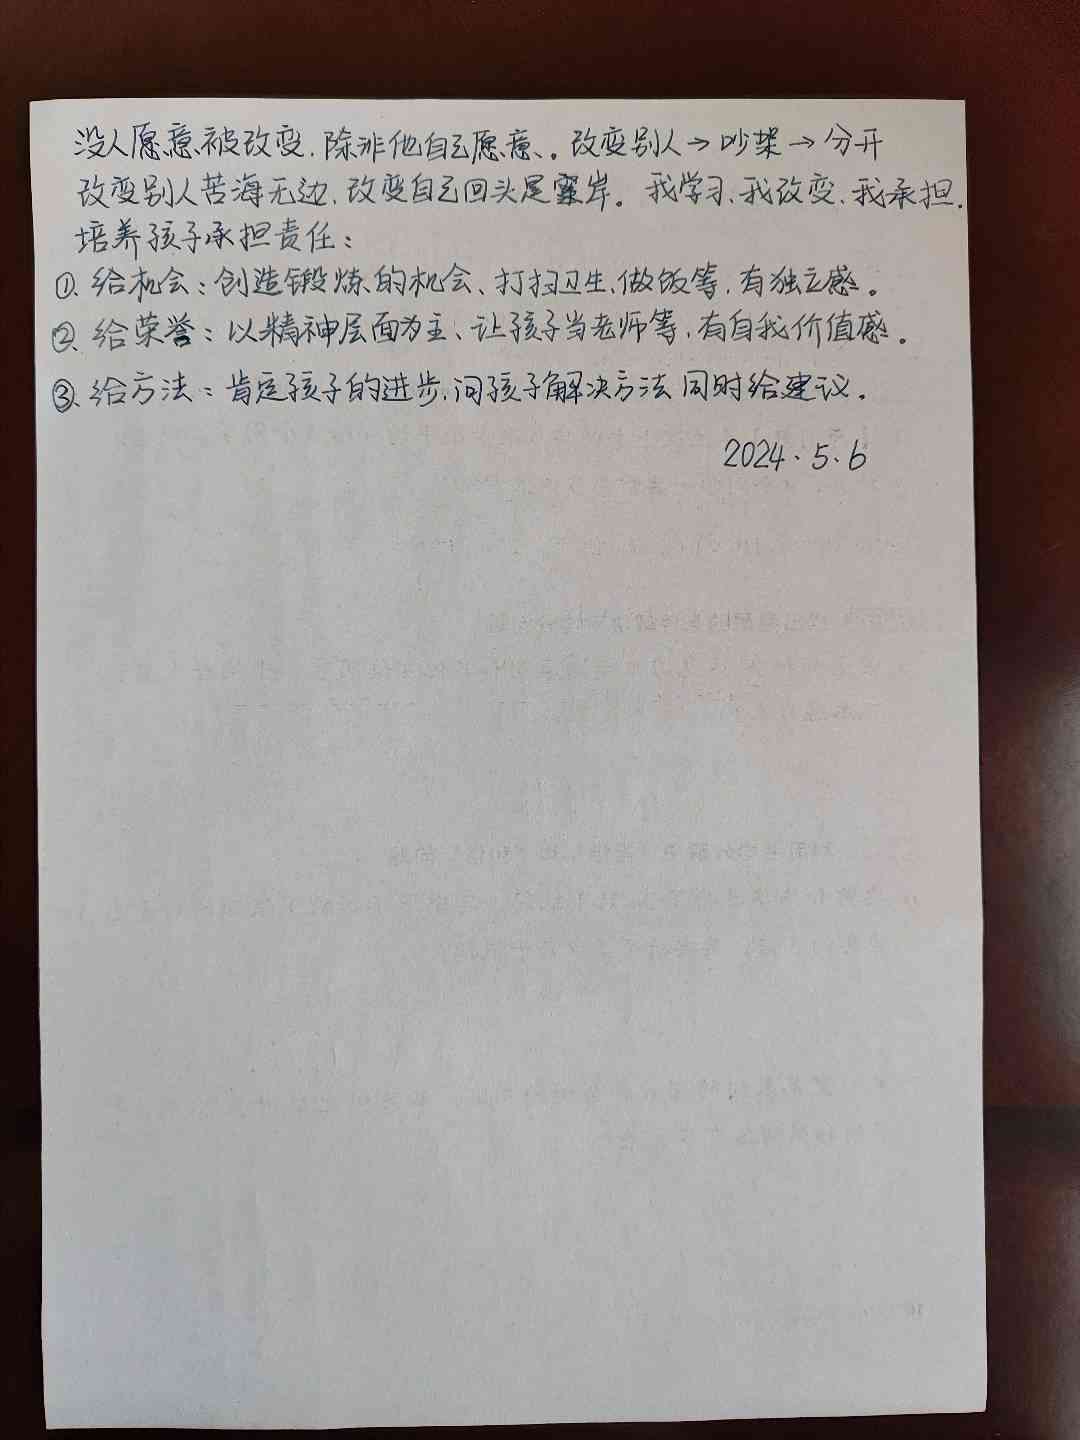 没人愿意被改变，除非他自己愿意、。改变别人→吵架→分开
改变别人苦海无边，改变自己回头是岸。我学习、我改变、我承担.
培养孩子承担责任：
①、给机会：创造锻炼的机会、打扫卫生、做饭等，有独立感。
②、给荣誉：以精神层面为主、让孩子当老师等，有自我价值感。
③、给方法：肯定孩子的进步，问孩子解决方法同时给建议。
2024.5.6